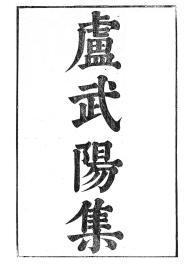 盧武陽集